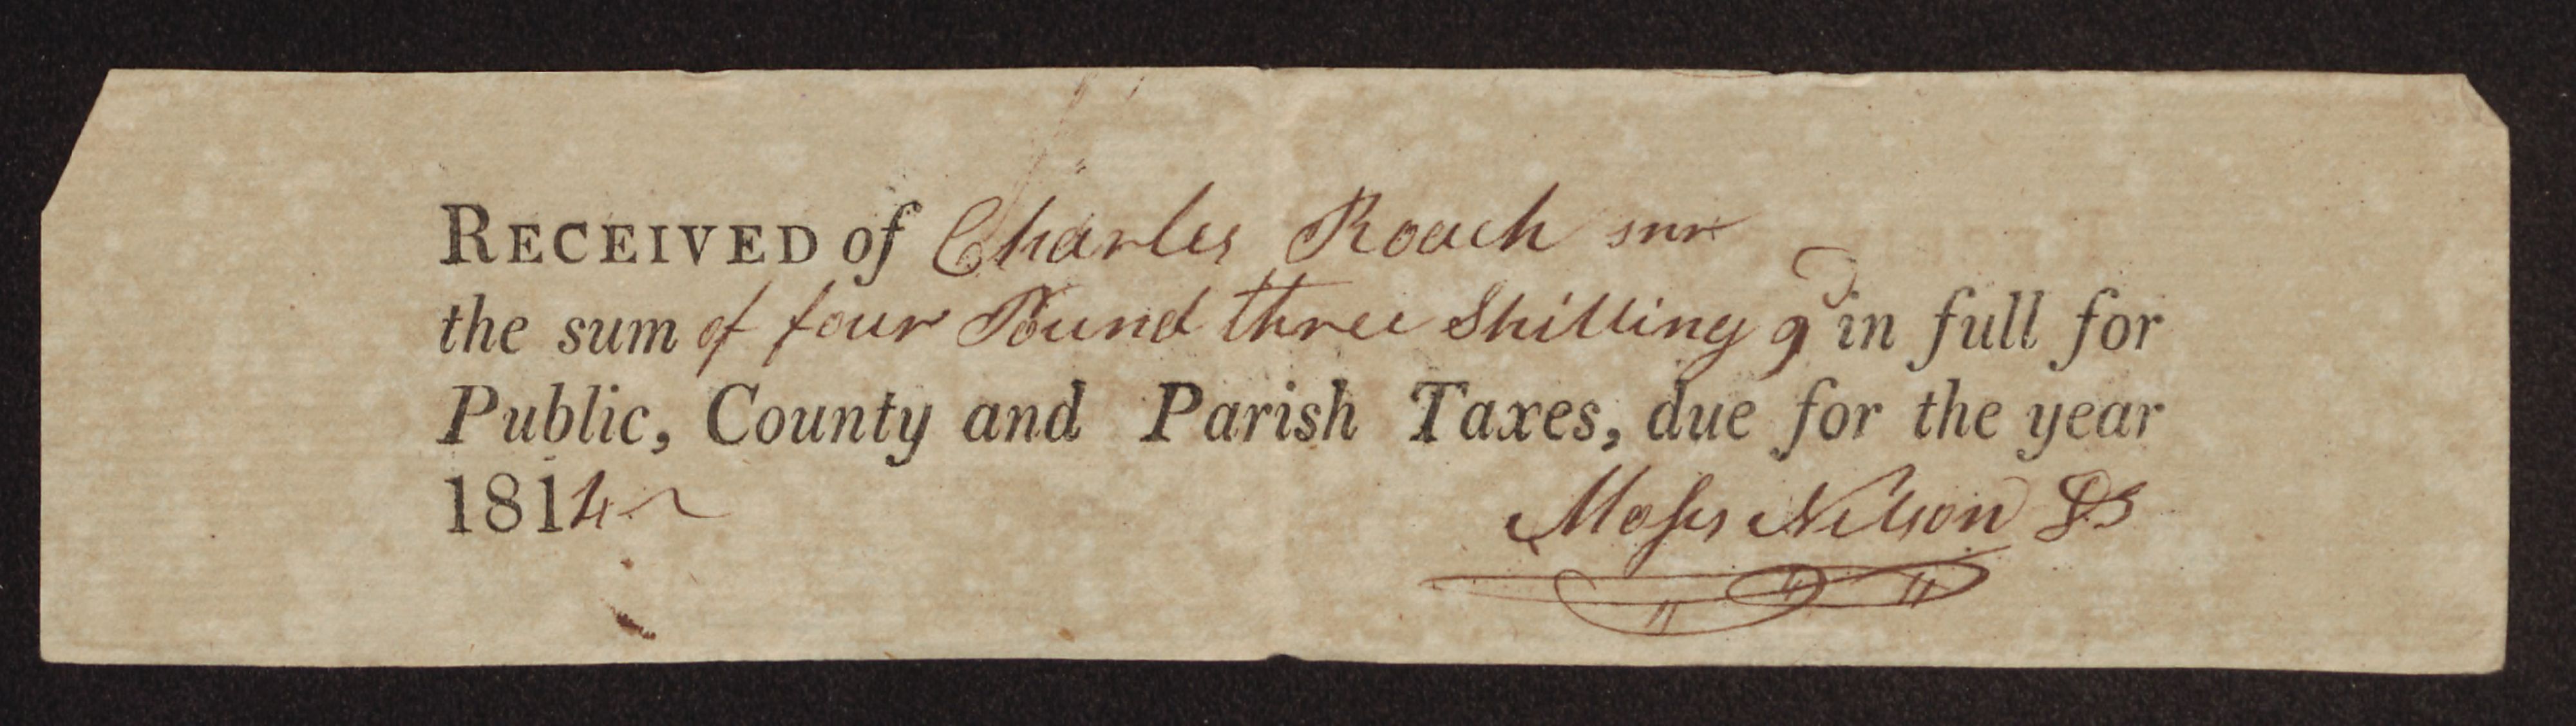 RECEIVED of Charles Roach snr
the sum of four Pound three Shilling 9d in full for
Public, County and Parish Taxes, due for the year
1814
Moses Nelson DS